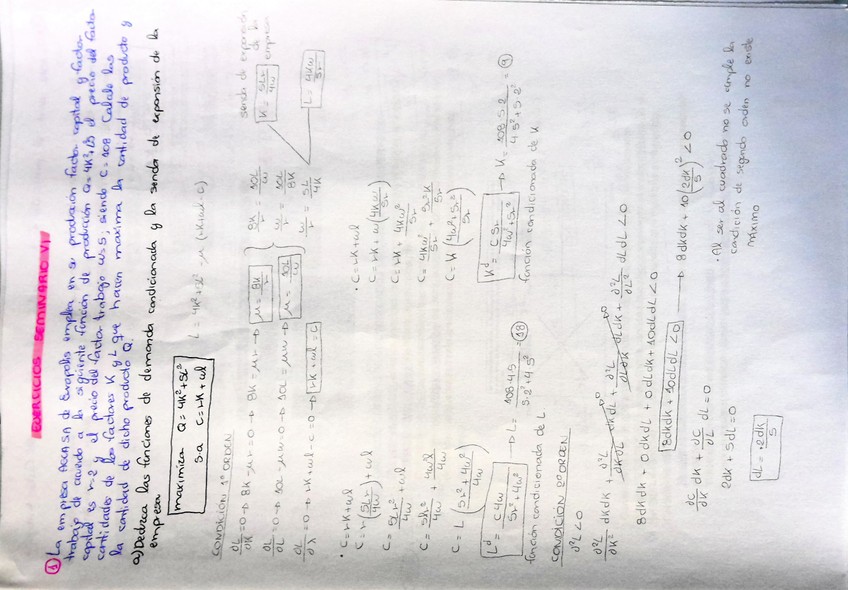 EJERCICIOS SEMINARIO VI
① La empresa ACCASA de Europolis emplea en su producción factor capital y factor
trabajo de acuerdo a la siguiente función de producción Q=4K²+5L² el precio del factor
capital es r=2 y el precio del factor trabajo w=5, siendo C=108. Calcule las
cantidades de los factores K y L que hacen maxima la cantidad de producto y
la cantidad de dicho producto Q.
a) Deduzca las funciones de demanda condicionada y la senda de expansión de la
empresa
maximica Q=4K²+5L²
s.a C=rK+wL
L = 4K²+5L² - μ (rK+wL-C)
CONDICIÓN 1ª ORDEN
∂L/∂K = 0 → 8K - μr = 0 → 8K = μr → μ = 8K/r
∂L/∂L = 0 → 10L - μw = 0 → 10L = μw → μ = 10L/w
8K/r = 10L/w
w/r = 10L/8K
w/r = 5L/4K
senda de expansión de la empresa
K = 5Lr/4w
L = 4Kw/5r
∂L/∂λ = 0 → rK+wL-C = 0 → rK+wL = C
• C = rK+wL
C = r(5Lr/4w) + wL
C = 5Lr²/4w + wL
C = 5Lr²/4w + 4wwL/4w
C = L(5r²+4w²/4w)
Lᵈ = C4w/5r²+4w² → L = 108·4·5/5·2²+4·5² = 18
función condicionada de L
• C = rK+wL
C = rK + w(4Kw/5r)
C = rK + 4Kw²/5r
C = 4Kw²/5r + 5r²K/5r
C = K(4w²+5r²/5r)
Kᵈ = C5r/4w²+5r² → K = 108·5·2/4·5²+5·2² = 9
función condicionada de K
CONDICIÓN 2º ORDEN
∂²L<0
∂²L/∂K² dKdK + ∂²L/∂K∂L dKdL + ∂²L/∂L∂K dLdK + ∂²L/∂L² dLdL <0
8dKdK + 0dKdL + 0dLdK + 10dLdL <0
8dKdK + 10dLdL <0 → 8dKdK + 10(2dK/5)² <0
∂C/∂K dK + ∂C/∂L dL = 0
2dK + 5dL = 0
dL = -2dK/5
• Al ser al cuadrado no se cumple la
condición de segundo orden no existe
máximo